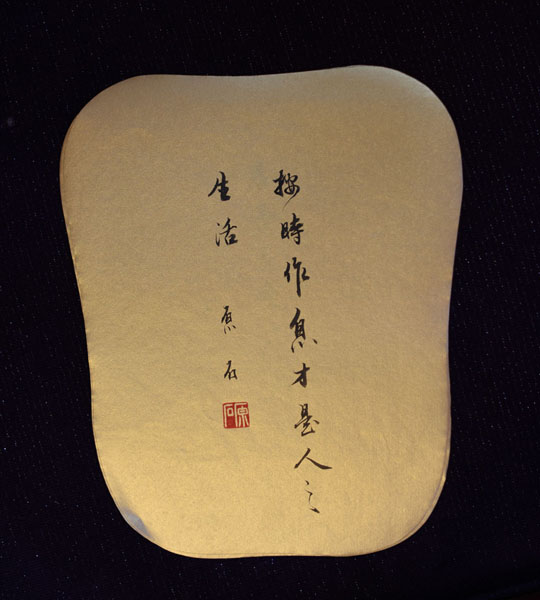 按時作息才是人之
生活 原石